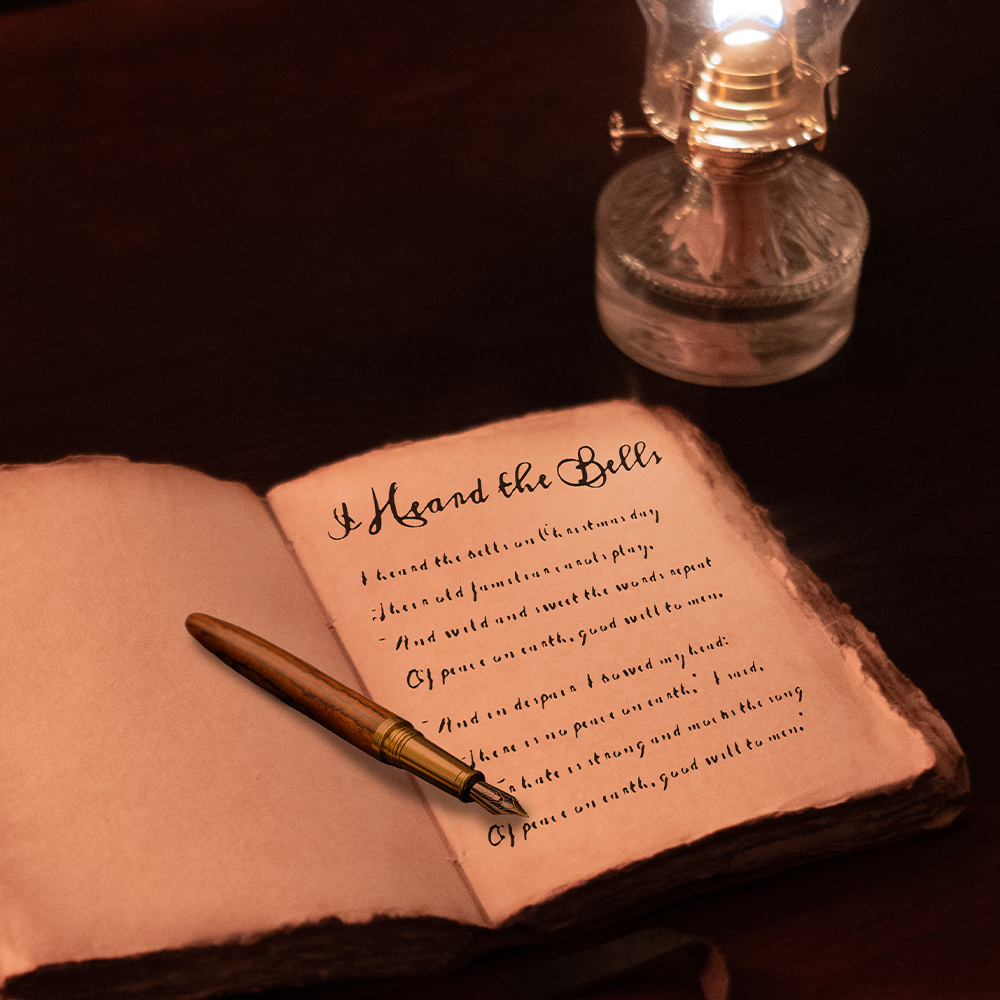 I Heard the Bells
I heard the bells on Christmas day
Their old familiar carols play,
And wild and sweet the words repeat
Of peace on earth, good will to men.
And in despair I bowed my head:
There is no peace on earth," I said,
hate is strong and mocks the song
Of peace on earth, good will to men."